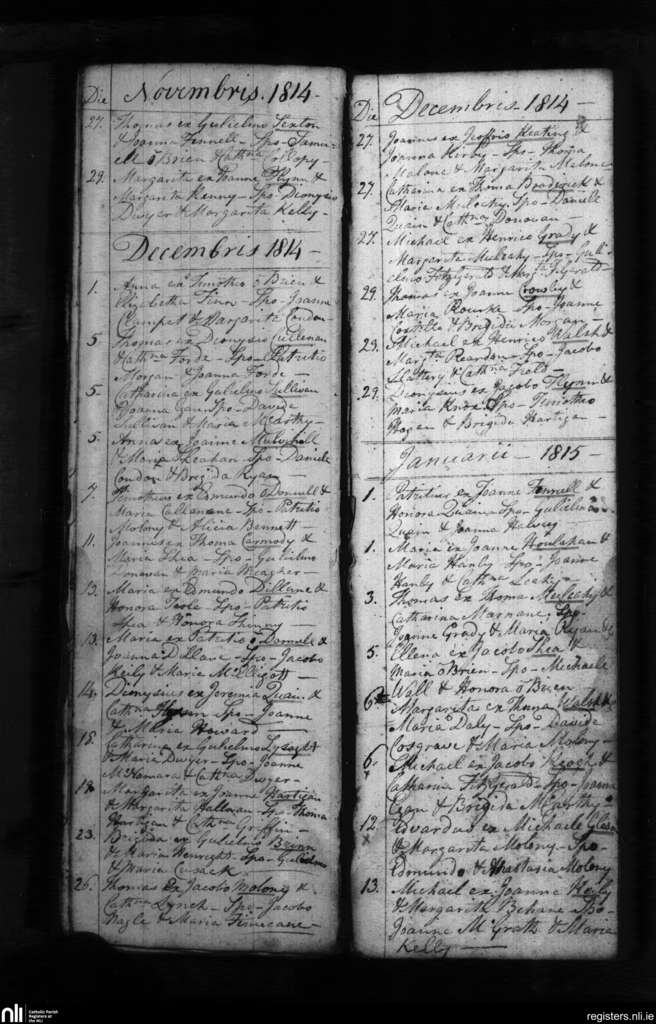 Die Novembris. 1814-
27. Thomas ex Gulielmo Sexton
& Joanna Fennell - Spo - Samu-
el ÓBrien
29. Margarita ex Joanne Flynn &
Margarita Kenny - Spo - Dionysio
Dwyer & Margarita Kelly -
Decembris 1814 -
1. Anna ex Timotheo ÓBrien &
Elizabetha Finn - Spo - Joanne
& Margarita Condon
5 Thomas ex Dionysio Cullenan
& Cathna Forde - Spo - Patritio
Morgan & Joanna Forde -
5 Catharina ex Gulielmo Sullivan
Joanna Spo - Davide
Sullivan & Maria McCarthy -
5. Anna ex Joanne
& Maria Sheahan Spo - Daniele
Condon & Brigda Ryan
7. Timotheus ex Edmundo ÓDonnell &
Maria Callanane - Spo - Patritio
Molony & Alicia Bennett -
11. Joannes ex Thoma Carmody &
Maria Shea - Spo - Gulielmo
Donavan & Maria Meagher -
13. Maria ex Edmundo Dillane &
Honora Toole - Spo - Patritio
Shea & Honora
13. Maria ex Patritio ÓDonnell &
Joanna Dillane - Spo - Jacobo
Kiely & Maria McElligott -
14. Dionysius ex Jeremia Quain &
Cathna Spo - Joanne
& Maria Howard
18. Catharina ex Gulielmo Lysaght
& Maria Dwyer - Spo - Joanne
McNamara & Cathna Dwyer -
19. Margarita ex Joanne Hartigan
& Margarita Hallinan - Spo - Thoma
Hartigan & Cathna Griffin -
23. Brigida ex Gulielmo
& Maria Henright - Spo - Gulielmo
& Maria Cusack
26. Thomas ex Jacobo Molony &
Cathna Lynch - Spo - Jacobo
Nagle & Maria Finucane -
Die Decembris - 1814 -
27. Joannes ex Keating &
Joanna Kirby - Spo - Thoma
Malone & Margarita Malone -
27. Catharina ex Thoma Broderick &
Maria Spo - Daniele
Quain & Cathna Donovan -
27. Michael ex Henrico Grady &
Margarita Mulcahy - Spo - Guli-
elmo Fitzgerald & Fitzgerald
29. Thomas ex Joanne Crowley &
Maria Rourke - Spo - Joanne
Costello & Brigida Morgan -
29. Michael ex Henrico Walsh &
Reardon - Spo - Jacobo
Slattery & Cathna
29. Dionysius ex Jacobo Flynn &
Maria Knox - Spo - Timotheo
Hogan & Brigida Hartigan -
Januarii - 1815 -
1. Patritius ex Joanne Fennell &
Honora Quain - Spo - Gulielmo
Quain & Joanna
1. Maria ex Joanne Houlahan &
Maria Hanly Spo - Joanne
Hanly & Cathna
3. Thomas ex Thoma &
Catharina Marnane; Spo -
Joanne Grady & Maria Ryan
5. Ellena ex Jacobo Shea &
Maria ÓBrien - Spo - Michaele
Wall & Honora ÓBrien
6 Margarita ex Thoma Walsh &
Maria Daly - Spo - Davide
Cosgrave & Maria Molony -
6. Michael ex Jacobo Keogh &
Catharina Fitzgerald - Spo - Joanne
Egan & Brigida McCarthy
12 Edvardus ex Michaele
& Margarita Molony - Spo -
Edmundo & Anastasia Molony
13. Michael ex Joanne Kiely
& Margarita Behane Spo -
Joanne McGrath & Maria
Kelly
nli Catholic Parish
Registers at
the NLI
registers.nli.ie